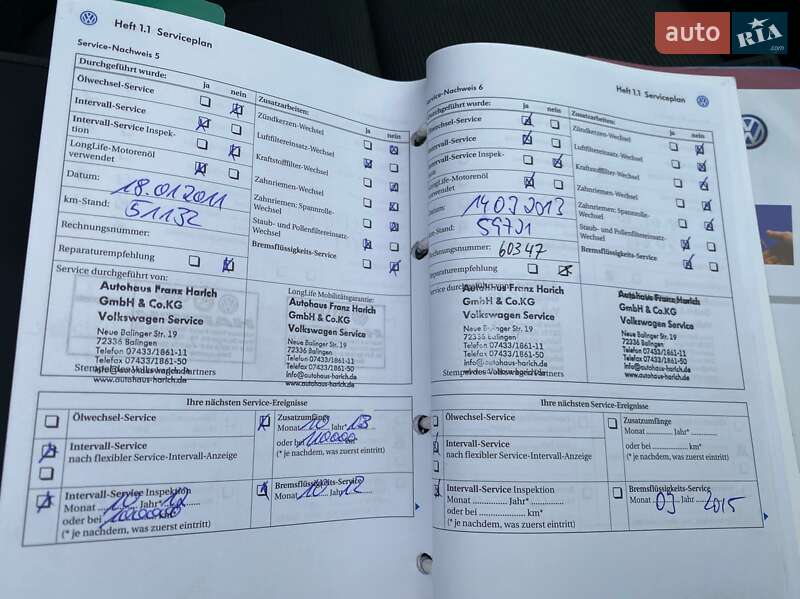 auto RIA .com
Heft 1.1 Serviceplan
Service-Nachweis 5
Durchgeführt wurde:
ja nein
Ölwechsel-Service
Intervall-Service
Intervall-Service Inspek-
tion
LongLife-Motorenöl
verwendet
Datum:
18.01.2011
km-Stand:
51132
Rechnungsnummer:
Reparaturempfehlung
Service durchgeführt von:
Zusatzarbeiten:
ja nein
Zündkerzen-Wechsel
Luftfiltereinsatz-Wechsel
Kraftstofffilter-Wechsel
Zahnriemen-Wechsel
Zahnriemen: Spannrolle-
Wechsel
Staub- und Pollenfiltereinsatz-
Wechsel
Bremsflüssigkeits-Service
LongLife Mobilitätsgarantie:
Autohaus Franz Harich
GmbH & Co.KG
Volkswagen Service
Neue Balinger Str. 19
72336 Balingen
Telefon 07433/1861-11
Telefax 07433/1861-50
info@autohaus-harich.de
www.autohaus-harich.de
Autohaus Franz Harich
GmbH & Co.KG
Volkswagen Service
Neue Balinger Str. 19
72336 Balingen
Telefon 07433/1861-11
Telefax 07433/1861-50
info@autohaus-harich.de
www.autohaus-harich.de
Ihre nächsten Service-Ereignisse
Ölwechsel-Service
Intervall-Service
nach flexibler Service-Intervall-Anzeige
Intervall-Service Inspektion
Monat Jahr*
oder bei
(* je nachdem, was zuerst eintritt)
Zusatzumfänge
Monat 10 Jahr* 13
oder bei km*
(* je nachdem, was zuerst eintritt)
Bremsflüssigkeits-Service
Monat 10 Jahr 12
Heft 1.1 Serviceplan
Service-Nachweis 6
Durchgeführt wurde:
ja nein
Ölwechsel-Service
Intervall-Service
Intervall-Service Inspek-
tion
LongLife-Motorenöl
verwendet
Datum:
14.03.2013
km-Stand:
59721
Rechnungsnummer: 60347
Reparaturempfehlung
Service durchgeführt von:
Zusatzarbeiten:
ja nein
Zündkerzen-Wechsel
Luftfiltereinsatz-Wechsel
Kraftstofffilter-Wechsel
Zahnriemen-Wechsel
Zahnriemen: Spannrolle-
Wechsel
Staub- und Pollenfiltereinsatz-
Wechsel
Bremsflüssigkeits-Service
Autohaus Franz Harich
GmbH & Co.KG
Volkswagen Service
Neue Balinger Str. 19
72336 Balingen
Telefon 07433/1861-11
Telefax 07433/1861-50
info@autohaus-harich.de
www.autohaus-harich.de
Autohaus Franz Harich
GmbH & Co.KG
Volkswagen Service
Neue Balinger Str. 19
72336 Balingen
Telefon 07433/1861-11
Telefax 07433/1861-50
info@autohaus-harich.de
www.autohaus-harich.de
Ihre nächsten Service-Ereignisse
Ölwechsel-Service
Intervall-Service
nach flexibler Service-Intervall-Anzeige
Intervall-Service Inspektion
Monat Jahr*
oder bei km*
(* je nachdem, was zuerst eintritt)
Zusatzumfänge
Monat Jahr*
oder bei km*
(* je nachdem, was zuerst eintritt)
Bremsflüssigkeits-Service
Monat 03 Jahr 2015